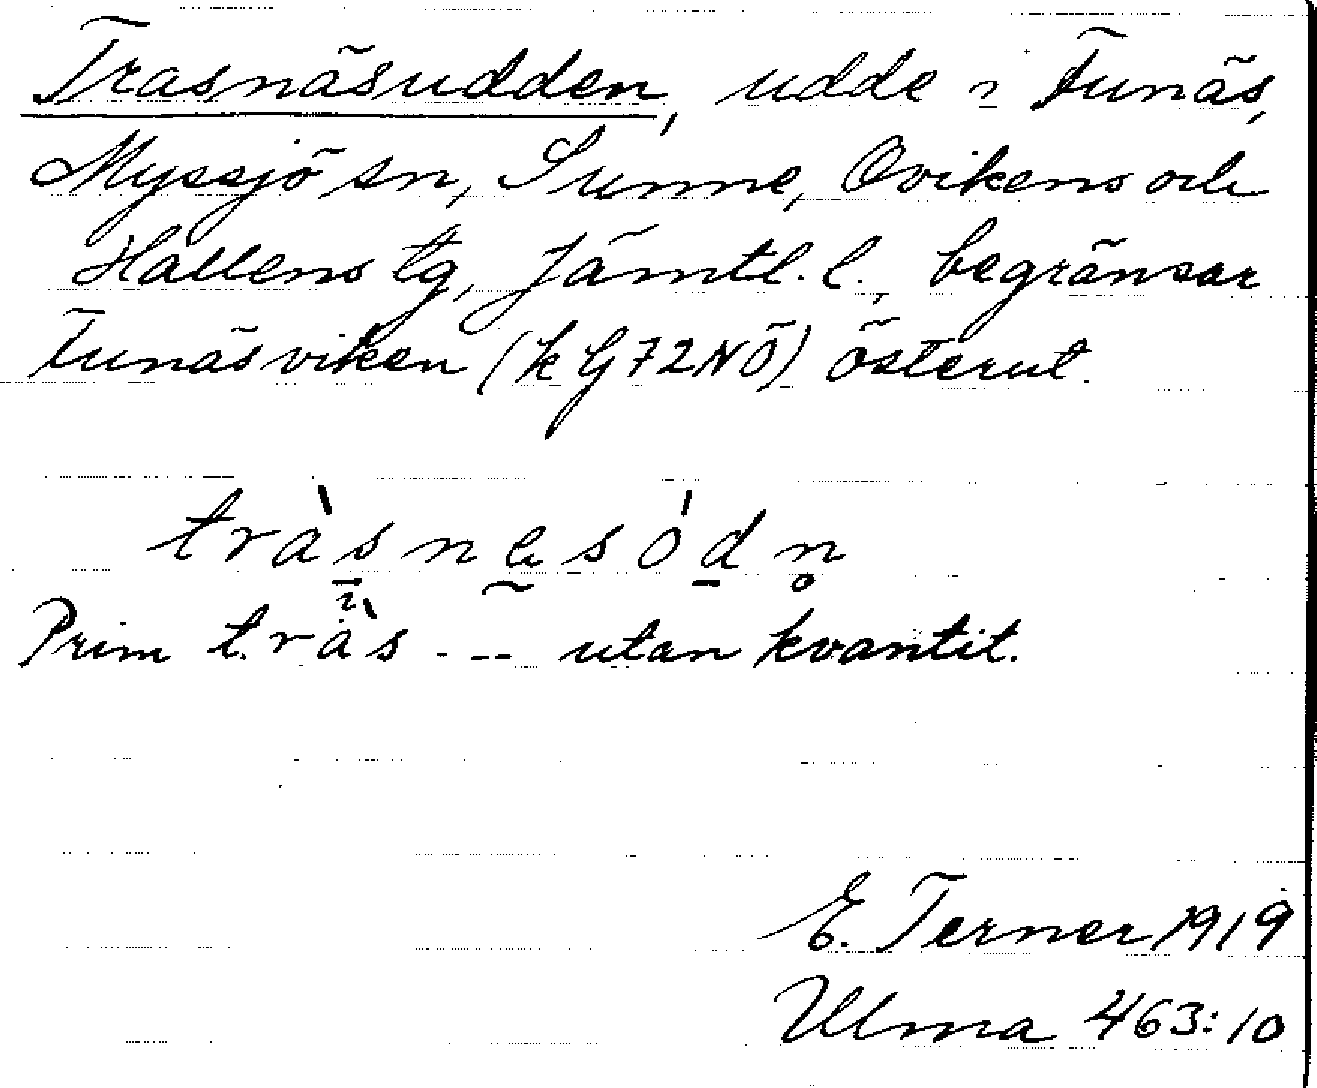 Trasnäsudden, udde i Funäs,
Myssjö sn, Sunne, Ovikens och
Hallens tg, Jämtl. l., begränsar
Funäsviken (kG72NÖ) österut.
tràsnesódn
Prim. tràs --- utan kvantit.
E. Terner 1919
Ulma 463:10